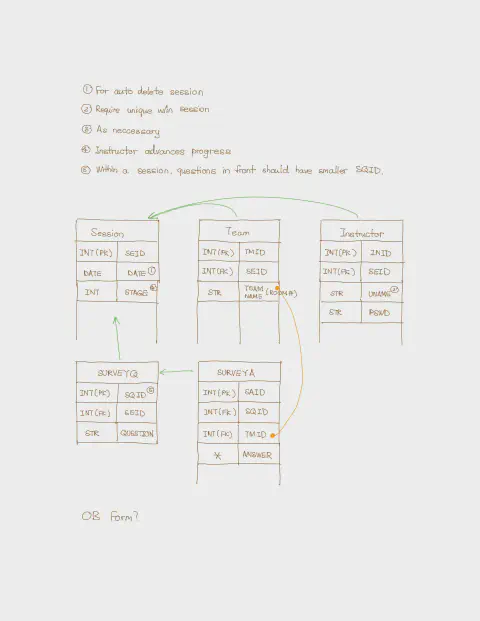 ① For auto delete session
② Require unique w/in session
③ As neccessary
④ Instructor advances progress
⑤ Within a session, questions in front should have smaller SQID.
Session
INT(PK) SEID
DATE DATE ①
INT STAGE ④
Team
INT(PK) TMID
INT(FK) SEID
STR TEAM NAME (ROOM#)
Instructor
INT(PK) INID
INT(FK) SEID
STR UNAME ②
STR PSWD
SURVEYQ
INT(PK) SQID ⑤
INT(FK) SEID
STR QUESTION
SURVEYA
INT(PK) SAID
INT(FK) SQID
INT(FK) TMID
* ANSWER
OB Form?